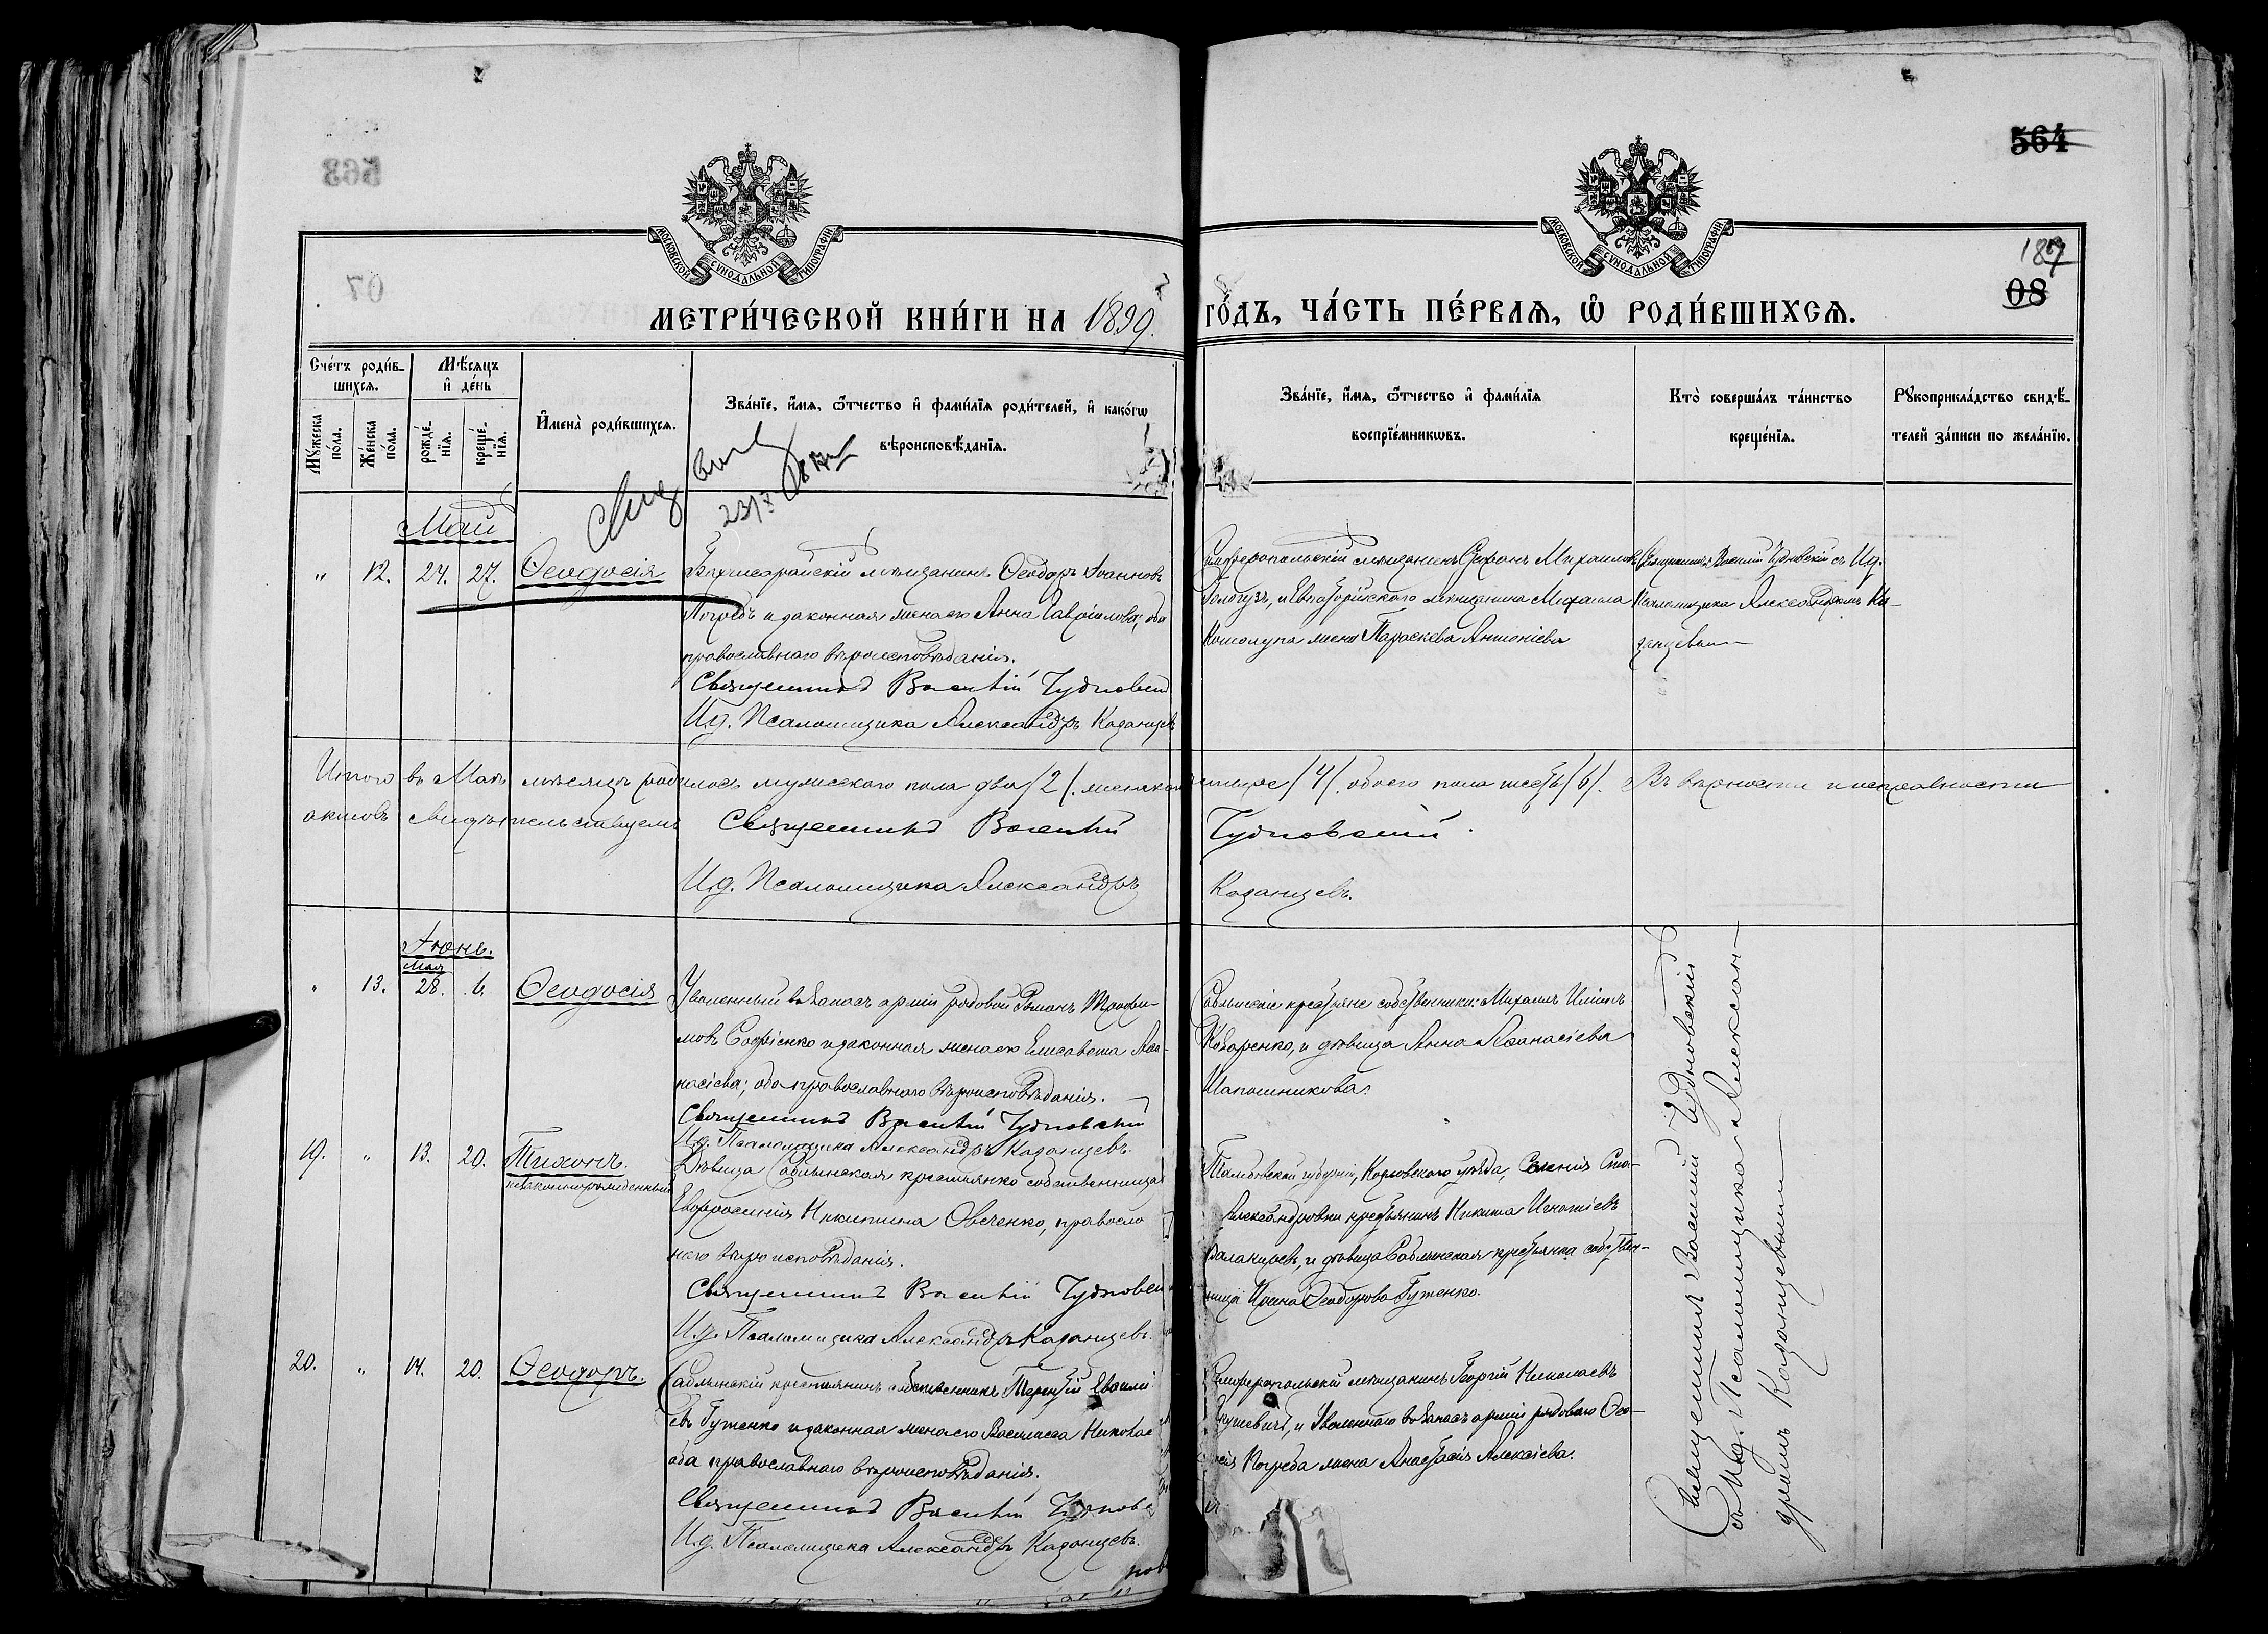 564
563
МОСКОВСКОЙ СѴНОДАЛЬНОЙ ТИПОГРАФІИ
МОСКОВСКОЙ СѴНОДАЛЬНОЙ ТИПОГРАФІИ
187
07
08
МЕТРИ́ЧЕСКОЙ КНИ́ГИ НА 1899. ГО́ДЪ, ЧА́СТЬ ПЕ́РВАѦ, Ѡ҆ РОДИ́ВШИХСѦ.
Сче́тъ роди́в-
шихсѧ.
Мѣ́сѧцъ
и҆ де́нь
Мꙋ́жеска по́ла.
Же́нска по́ла.
рожде́-
нїѧ.
креще́-
нїѧ.
И҆мена̀ роди́вшихсѧ.
Зва́нїе, и҆́мѧ, ѻ҆́тчество и҆ фами́лїѧ роди́телей, и҆ како́гѡ
вѣроисповѣ́данїѧ.
Зва́нїе, и҆́мѧ, ѻ҆́тчество и҆ фами́лїѧ
воспрїе́мникѡвъ.
Кто̀ соверша́лъ та́инство
креще́нїѧ.
Рꙋкоприкла́дство свидѣ́-
телей за́писи по жела́нїю.
Май
" 12. 24. 27. Ѳеодосія
Бахчисарайскій мѣщанинъ Ѳеодоръ Іоанновъ
Погребъ и законная жена его Анна Гавріилова; оба
православнаго вѣроисповѣданія.
Священникъ Василій Чудновскій
И.д. Псаломщика Александръ Казанцевъ
Симферопольскій мѣщанинъ Стефанъ Михаиловъ
и Евпаторійскаго мѣщанина Михаила
жена Параскева Антоніева
Священникъ Василій Чудновскій съ И.д.
Псаломщика Александромъ Ка-
занцевымъ
Итого въ Маѣ мѣсяцѣ родилось мужескаго пола два /2/. женскаго четыре /4/. обоего пола шесть /6/. Въ вѣрности и исправности
актовъ свидѣтельствуемъ Священникъ Василій Чудновскій.
И.д. Псаломщика Александръ Казанцевъ.
Іюнь.
Мая
" 13. 28. 6. Ѳеодосія
Уволенный въ запасъ арміи рядовой Романъ Трофи-
мовъ Софіенко и законная жена его Елисавета Аѳа-
насіева; оба православнаго вѣроисповѣданія.
Священникъ Василій Чудновскій
И.д. Псаломщика Александръ Казанцевъ.
Саблынскіе крестьяне собственники: Михаилъ
и дѣвица Анна Аѳанасіева
Шапошникова.
19. " 13. 20. Тихонъ.
незаконнорожденный
Дѣвица Саблынская крестьянка собственница
Евфросинія Никитина Овченко, правосла
наго вѣроисповѣданія.
Священникъ Василій Чудновскій
И.д. Псаломщика Александръ Казанцевъ.
Тамбовской губерніи, Козловскаго уѣзда, Селенія Ста-
Александровки крестьянинъ Никита Игнатіевъ
и дѣвица Саблынская крестьянка собствен-
ница Ирина Ѳеодорова Гутенко.
20. " 14. 20. Ѳеодоръ.
Саблынскій крестьянинъ собственникъ Терентій
евъ Гутенко и законная жена его Василисса Николае
оба православнаго вѣроисповѣданія.
Священникъ Василій Чудновс
И.д. Псаломщика Александръ Казанцевъ.
Симферопольскій мѣщанинъ Георгій Николаевъ
и Уволеннаго въ запасъ арміи рядоваго Ѳео-
Погреба жена Анастасія Алексіева.
Священникъ Василій Чудновскій
съ И.д. Псаломщика Алексан-
дромъ Казанцевымъ